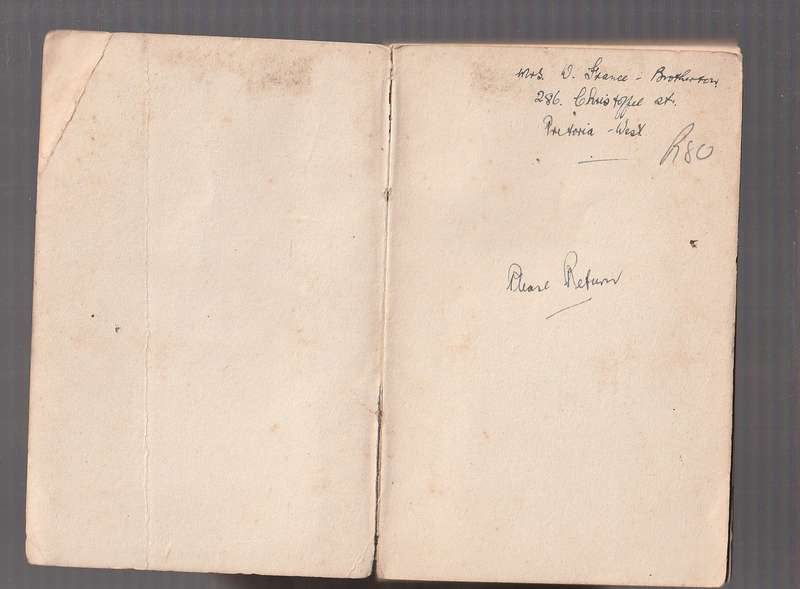 Mrs. D. France - Brotherton
286. Christoffel st.
Pretoria - West
R80
Please Return